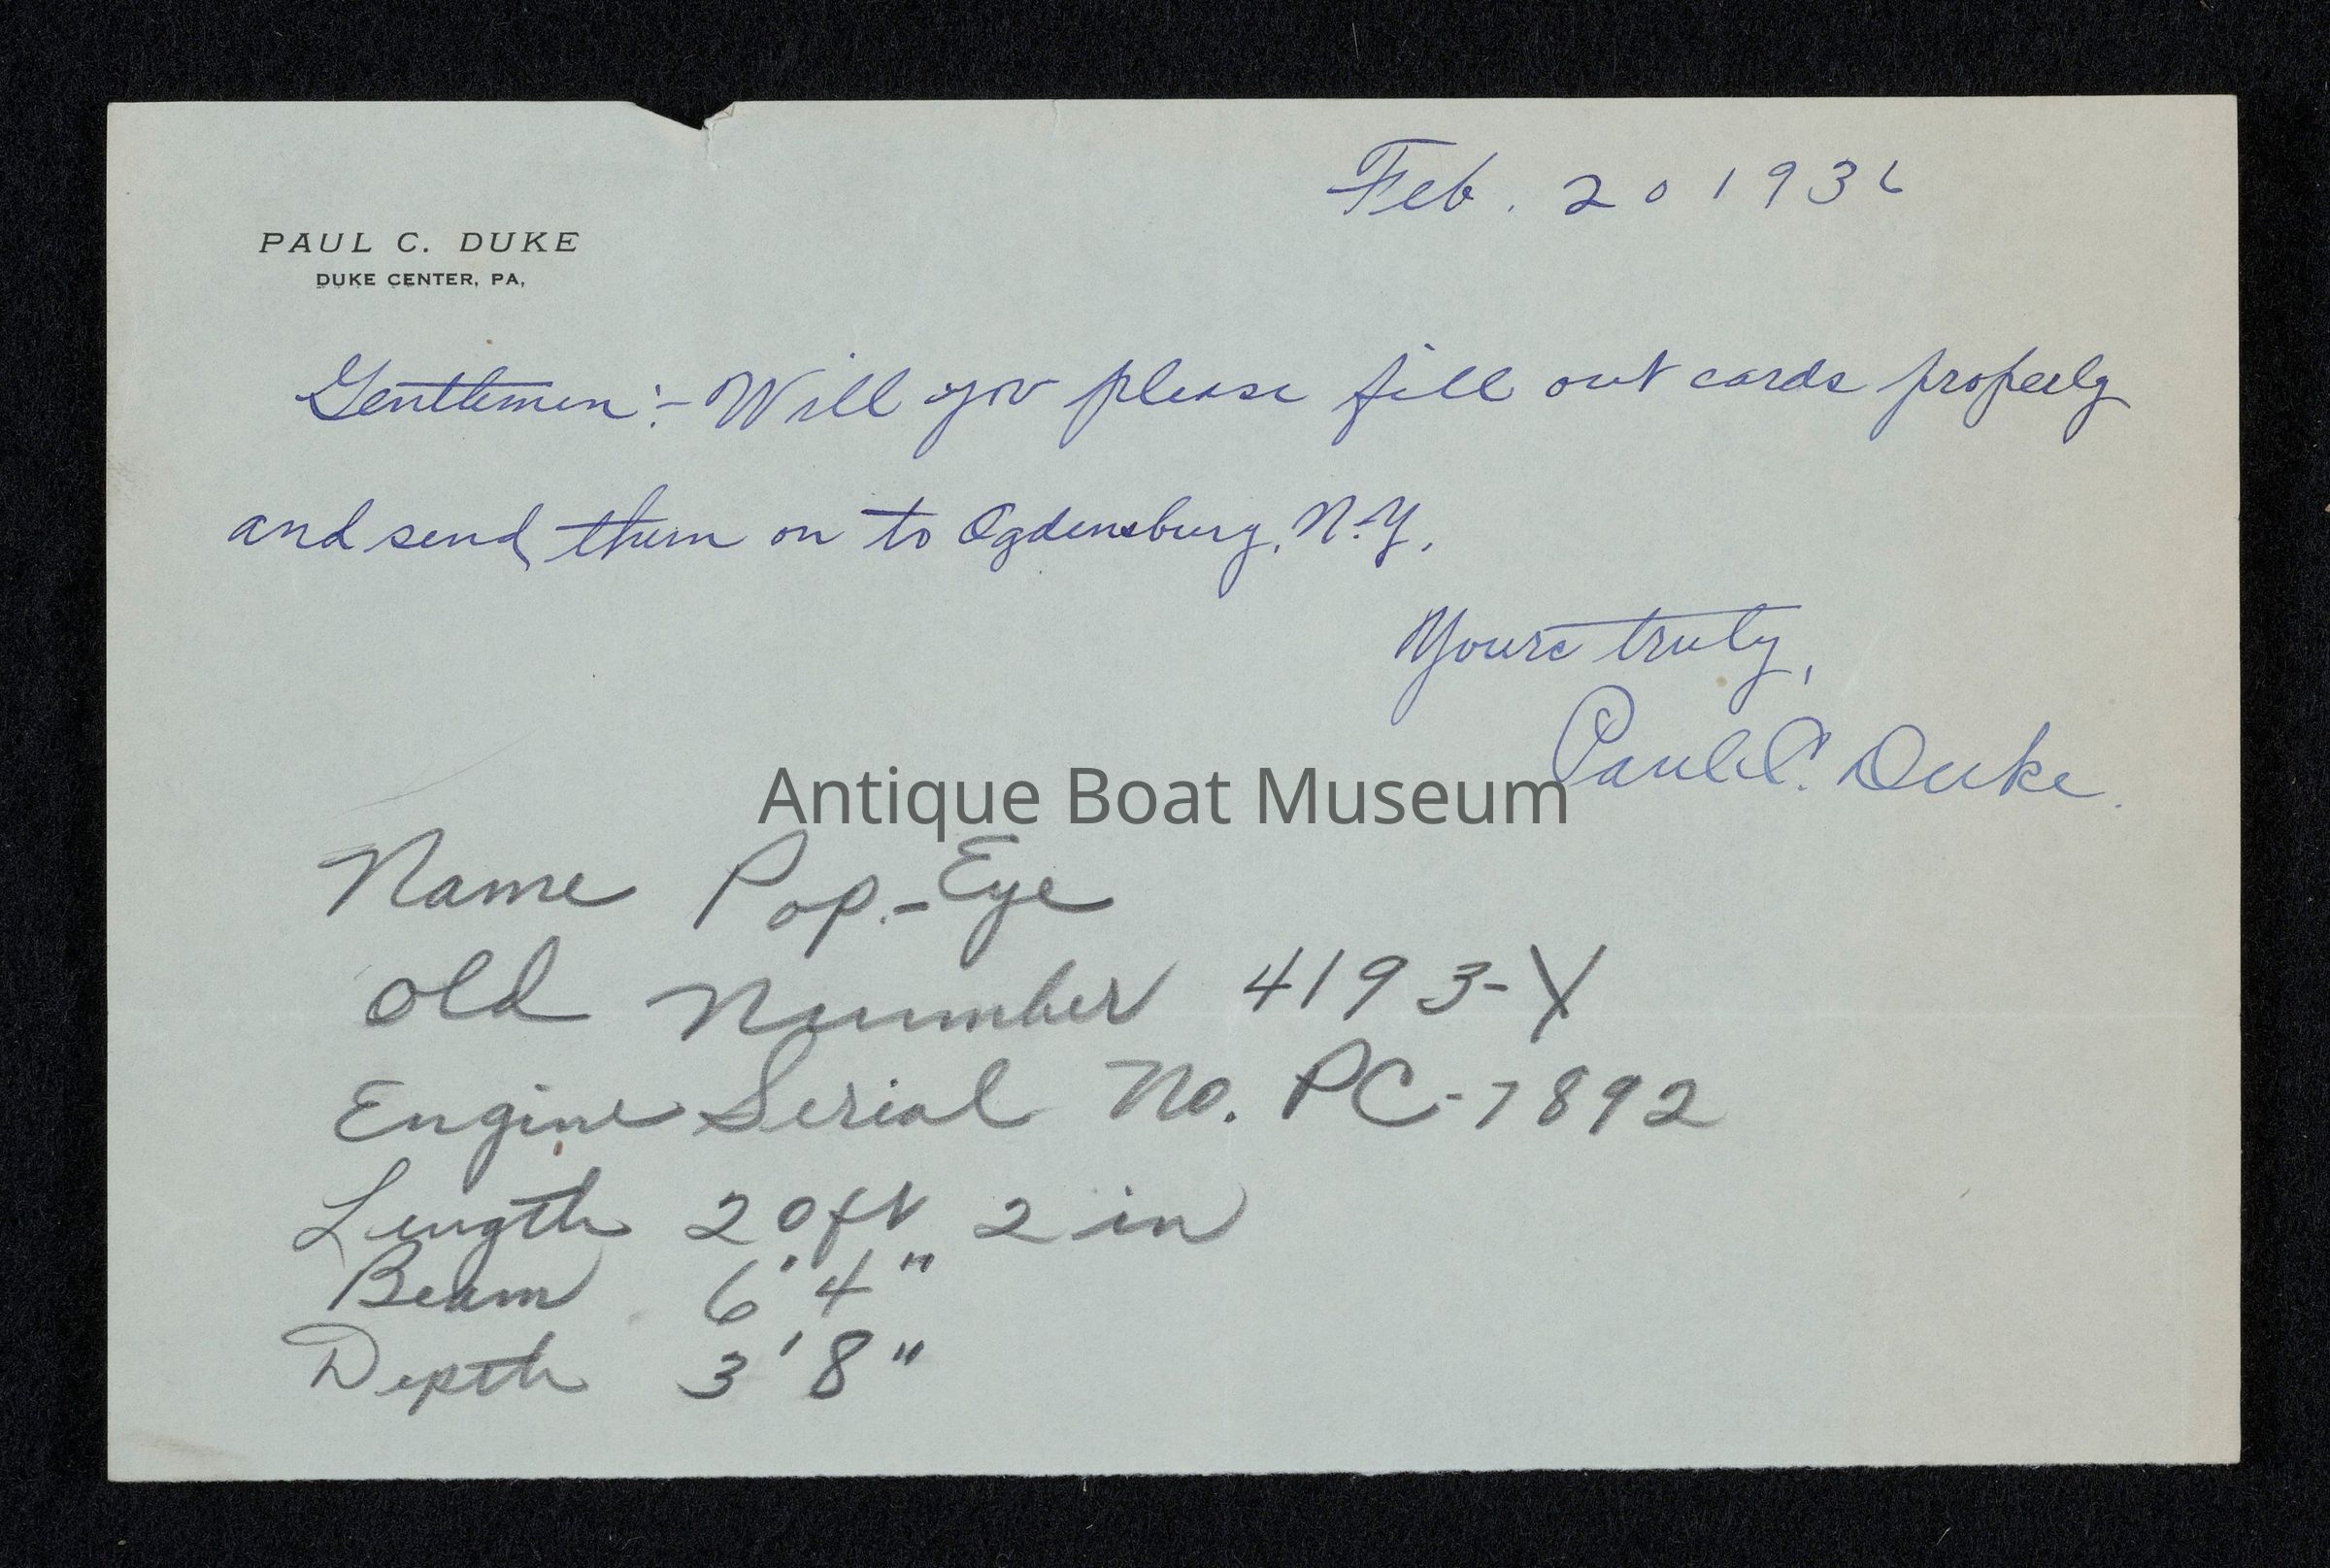 Feb. 20 1936
PAUL C. DUKE
DUKE CENTER, PA,
Gentlemen:- Will you please fill out cards properly
and send them on to Ogdensburg, N.Y.
Yours truly,
Paul C. Duke.
Antique Boat Museum
Name Pop.-Eye
Old Number 4193-Y
Engine Serial No. PC-7892
Length 20ft 2 in
Beam 6' 4"
Depth 3' 8"